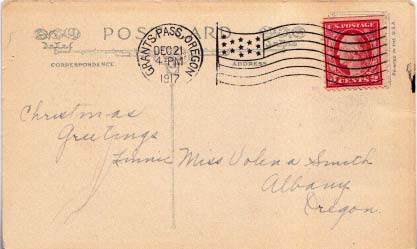 POST CARD
GRANTS PASS, OREGON
DEC 21
4 PM
1917
U.S. POSTAGE
2 CENTS 2
CORRESPONDENCE
ADDRESS
Christmas
Greetings
Linnie
Miss Volena Smith
Albany
Oregon.